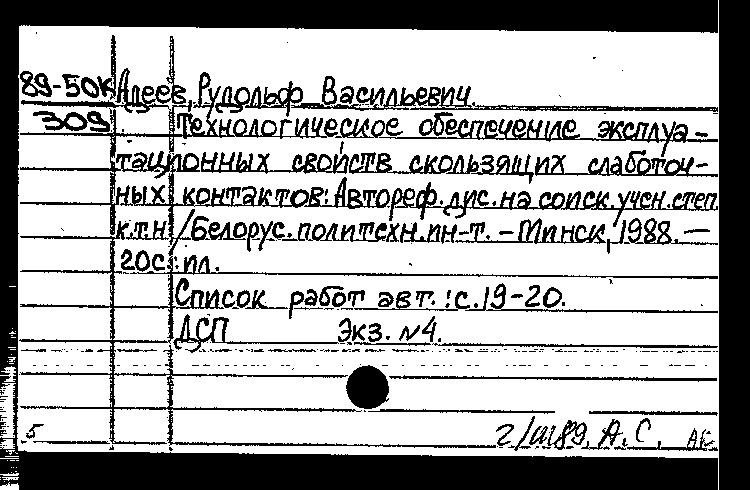 89-50К Адеев, Рудольф Васильевич.
309 Технологическое обеспечение эксплуа-
тационных свойств скользящих слаботоч-
ных контактов: Автореф. дис. на соиск. учен. степ.
к.т.н. /Белорус. политехн. ин-т. – Минск, 1988. —
20с.: ил.
Список работ авт.: с. 19-20.
ДСП Экз. №4.
5 2/III89. А.С.